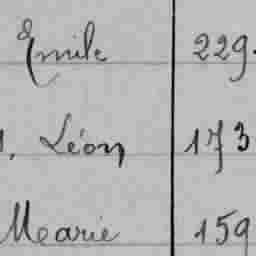 Emile 229.
Léon 173
Marie 159